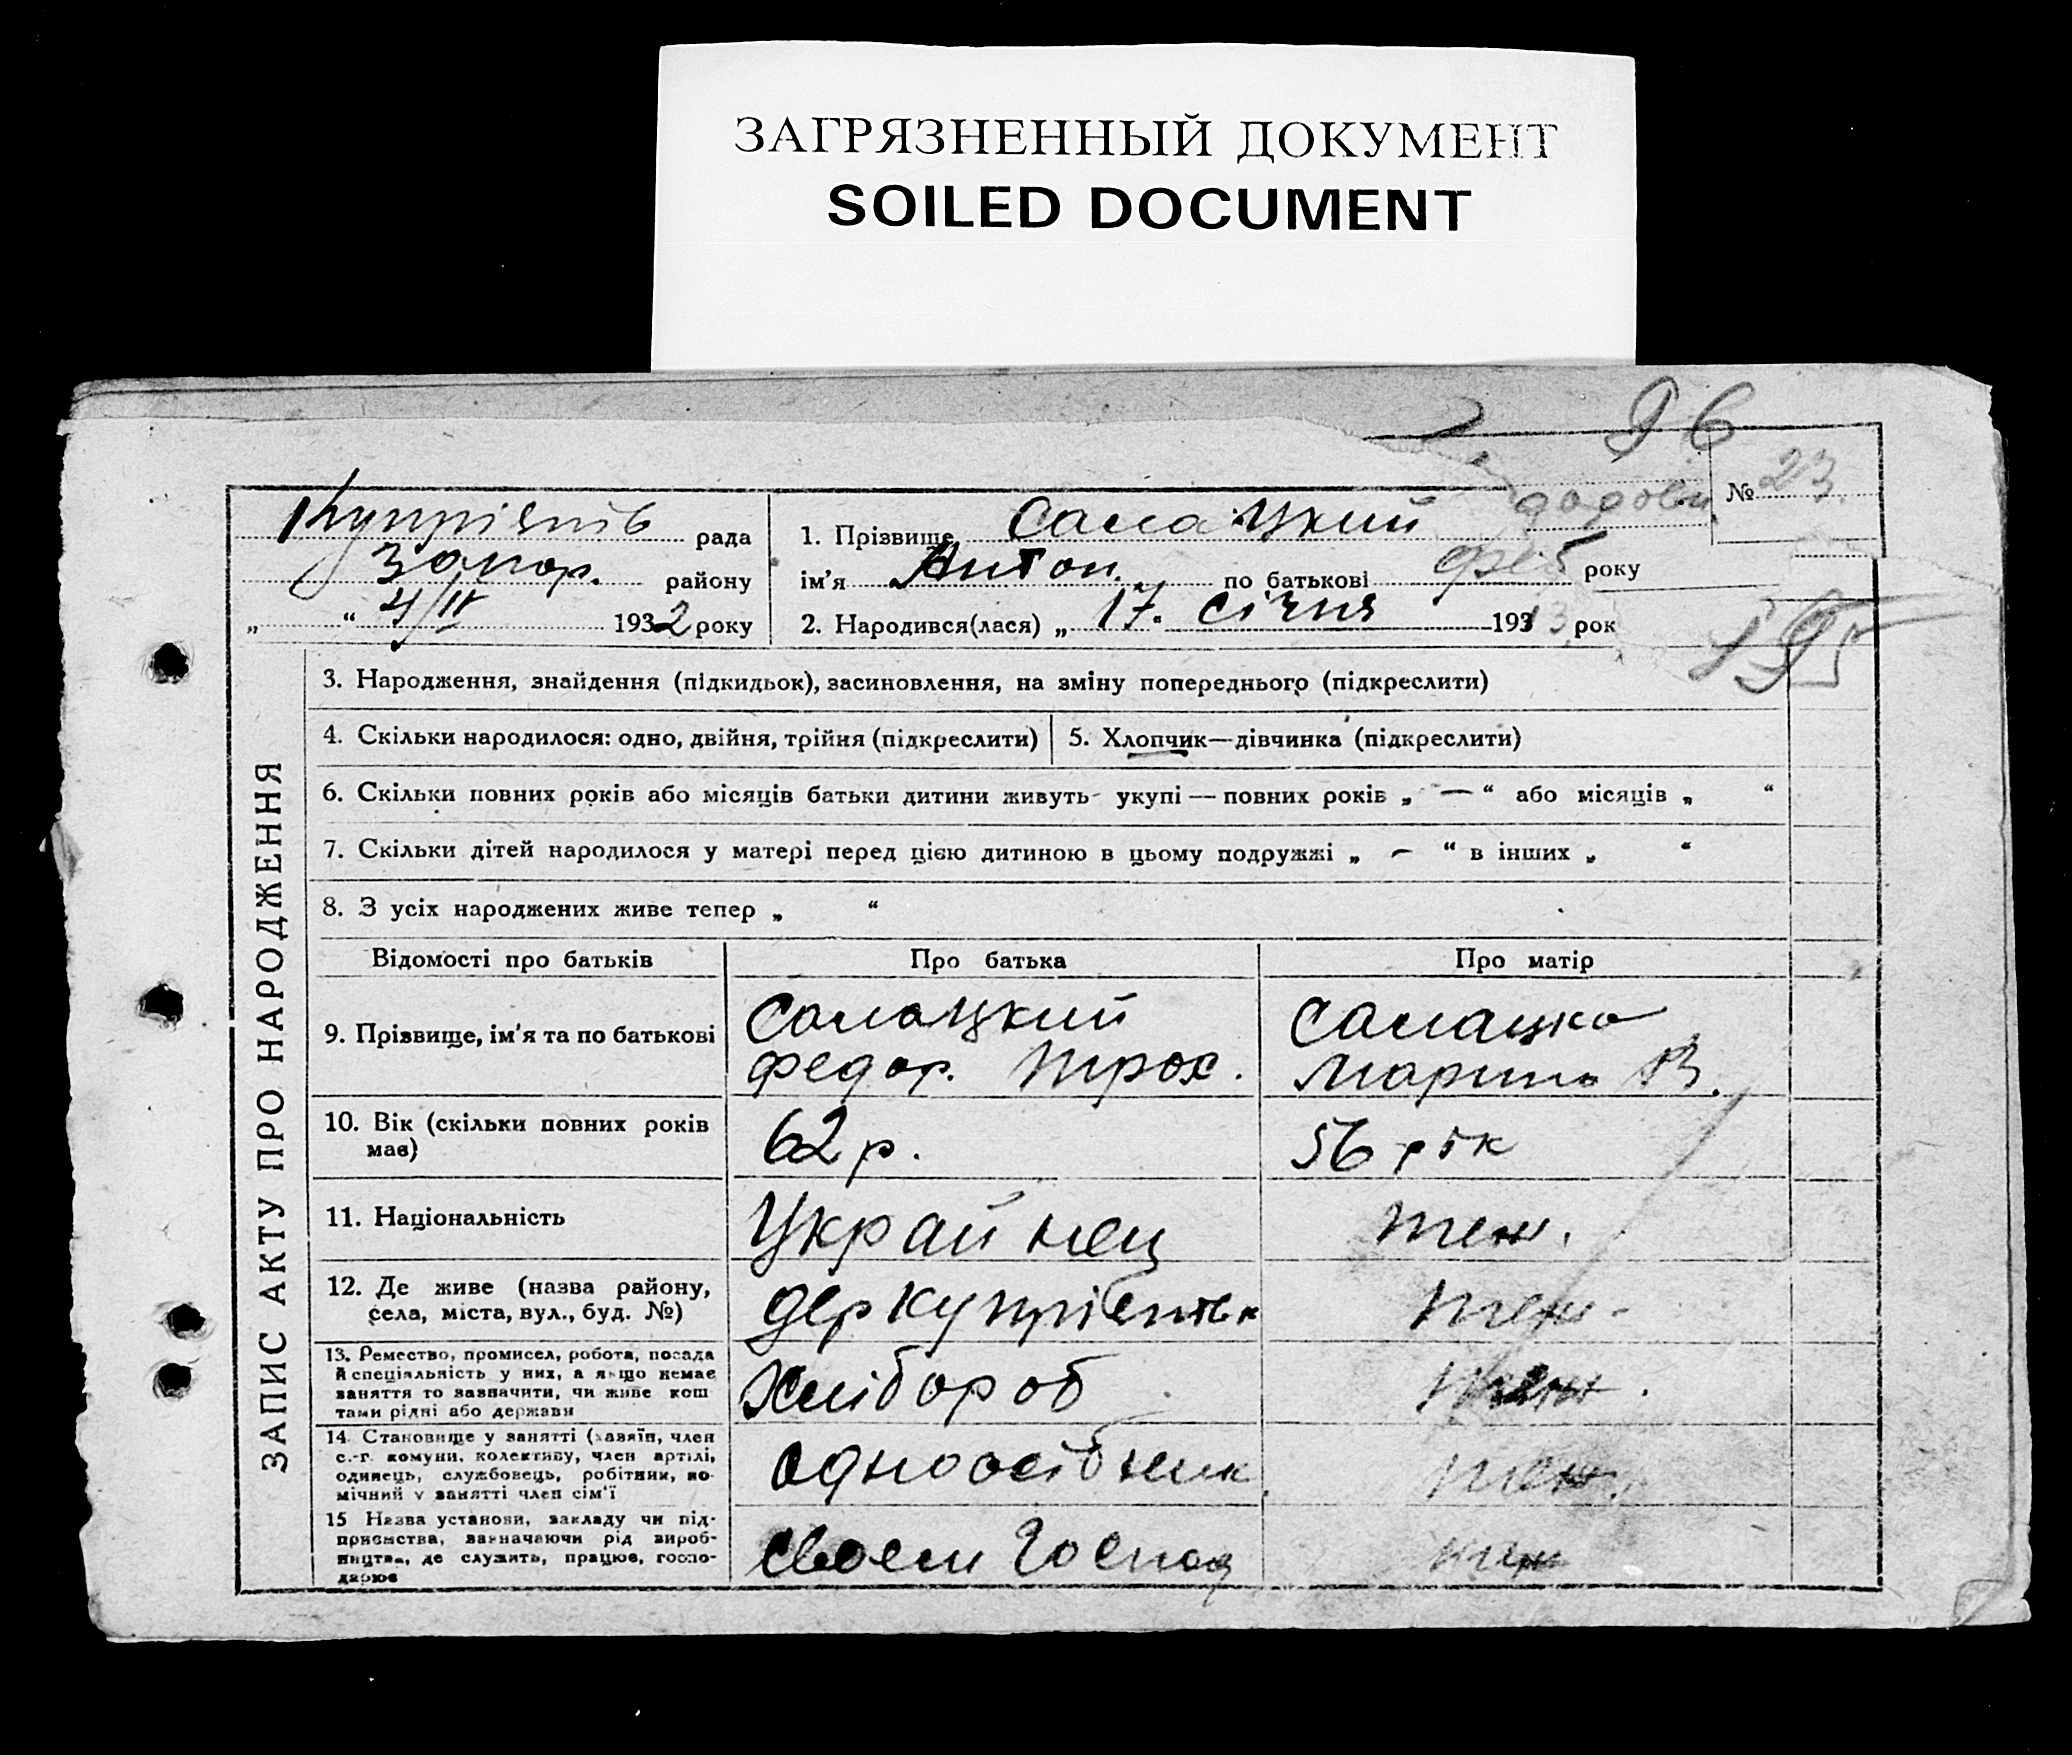 ЗАГРЯЗНЕННЫЙ ДОКУМЕНТ
SOILED DOCUMENT
96
№ 23.
рада
Запор. району
„ “ 4/IV 1932 року
1. Прізвище
ім'я Антон. по батькові року
2. Народився(лася) „ 17 “ січня 193 рок
ЗАПИС АКТУ ПРО НАРОДЖЕННЯ
3. Народження, знайдення (підкидьок), засиновлення, на зміну попереднього (підкреслити)
4. Скільки народилося: одно, двійня, трійня (підкреслити)
5. Хлопчик—дівчинка (підкреслити)
6. Скільки повних років або місяців батьки дитини живуть укупі — повних років „ — “ або місяців „ “
7. Скільки дітей народилося у матері перед цією дитиною в цьому подружжі „ — “ в інших „ “
8. З усіх народжених живе тепер „ “
Відомості про батьків
Про батька
Про матір
9. Прізвище, ім'я та по батькові
Федор. Трох.
Марина В.
10. Вік (скільки повних років
має)
62 р.
56 рік
11. Національність
Украйнец
теж.
12. Де живе (назва району,
села, міста, вул., буд. №)
теж
13. Ремество, промисел, робота, посада
й спеціяльність у них, а якщо немає
заняття то зазначити, чи живе кош
тами рідні або держави
Хлібороб
теж.
14. Становище у занятті (хазяїн, член
с.-г. комуни, колективу, член артілі,
одинець, службовець, робітник, по-
мічний у занятті член сім'ї
одноосібник
теж.
15 Назва установи, закладу чи під-
приємства, зазначаючи рід вироб-
ництва, де служить, працює, госпо-
дарює
своем Господ
теж